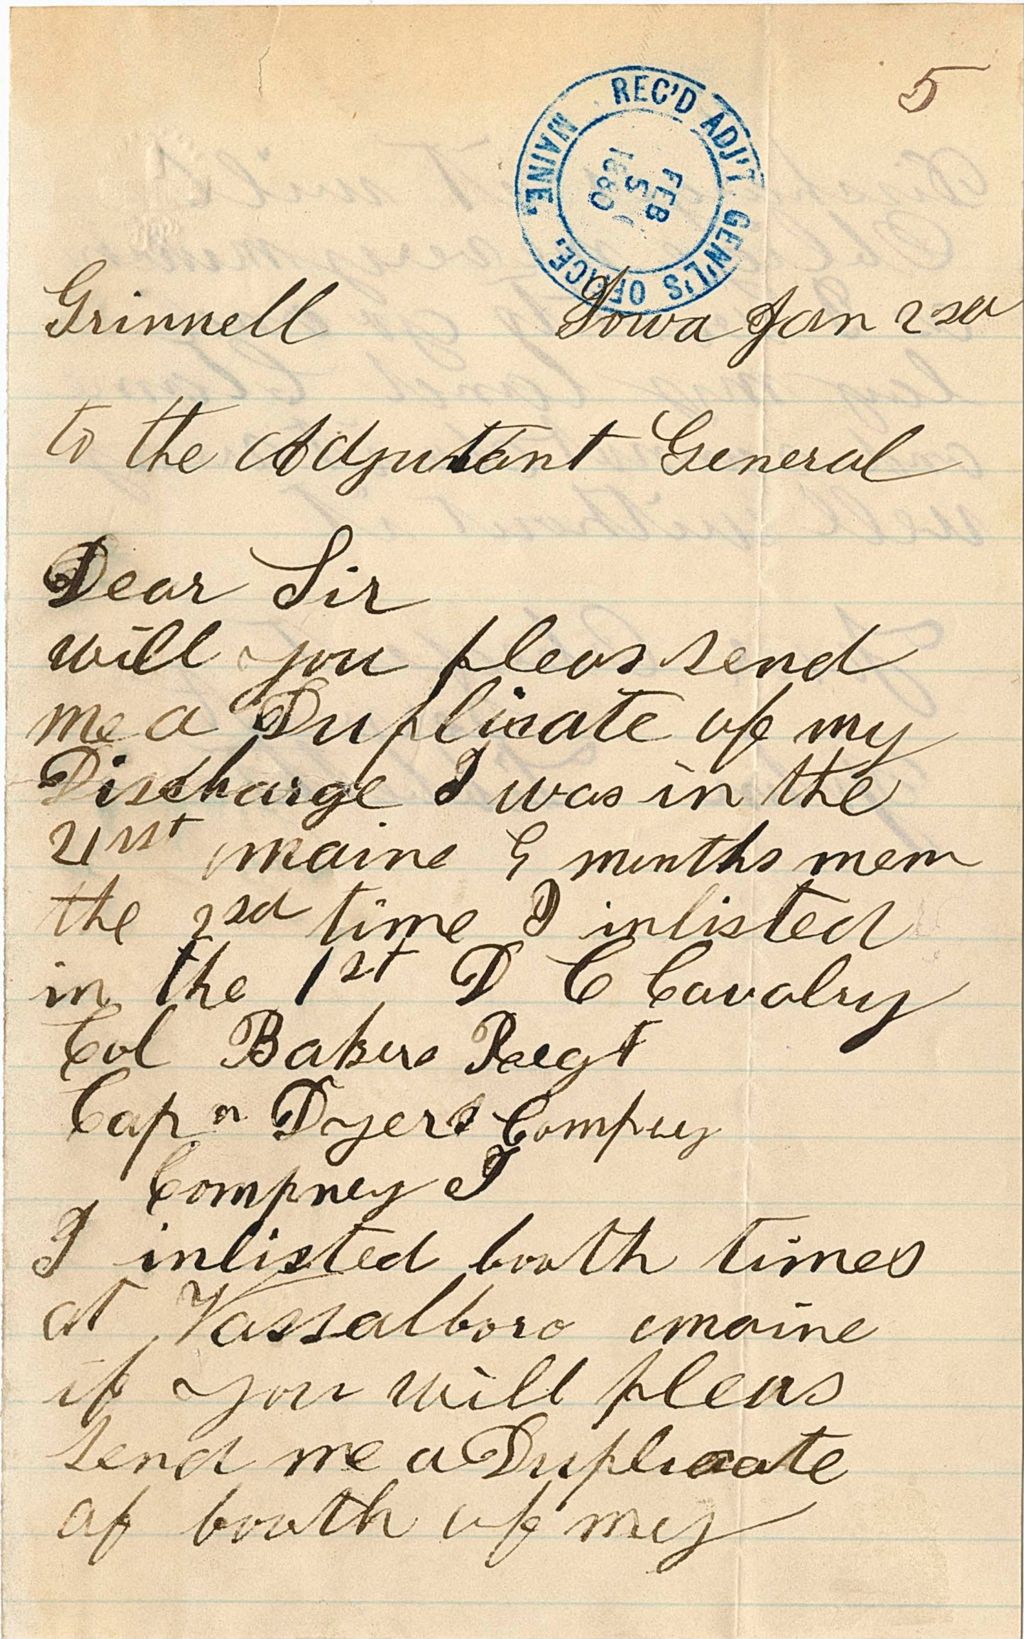 5
REC'D ADJ'T GEN'L'S OFFICE, MAINE.
FEB
5
1880
Grinnell Iowa Jan 2sd
to the Adjutant General
Dear Sir
will you pleas send
me a Duplicate of my
Discharge I was in the
21rst maine 9 months mem
the 2sd time I inlisted
in the 1st D C Cavalry
Col Bakers Regt
Capn Dyers Compny
Compney I
I inlisted booth times
at Vassalboro maine
if you will pleas
send me a Duplicate
of booth of my